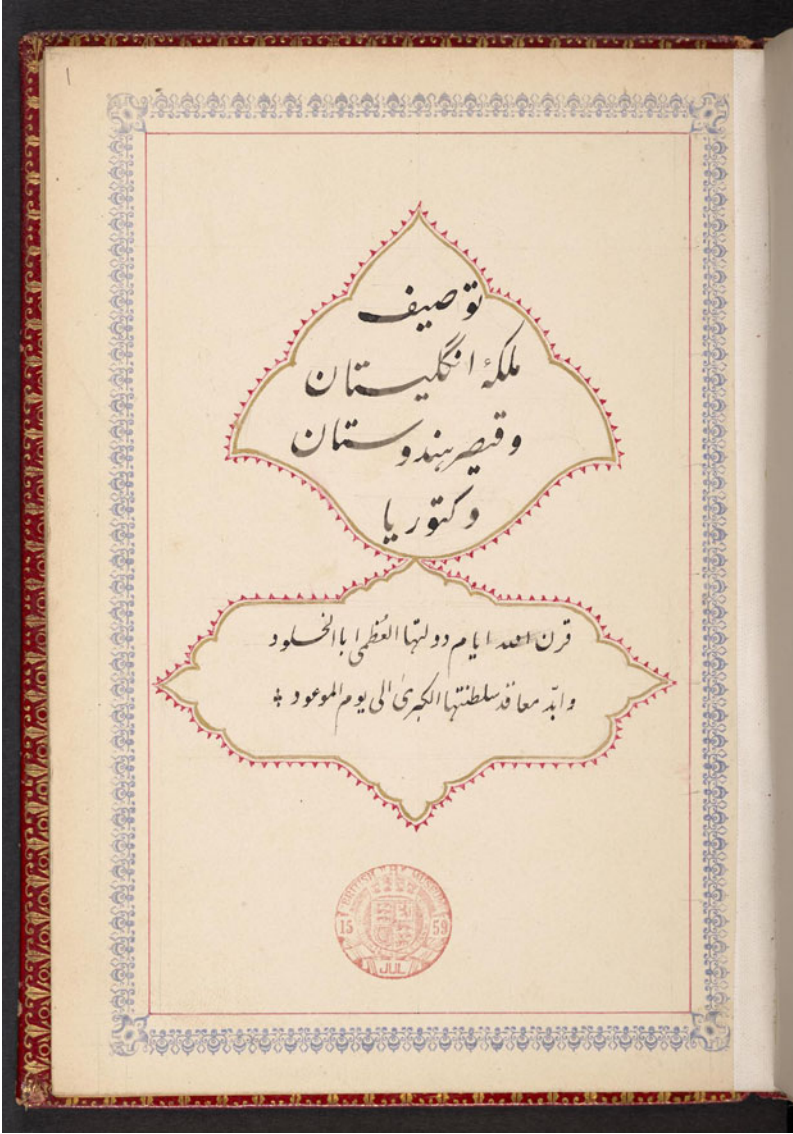 1
توصیف
ملکهٔ انگلیستان
و قیصر هندوستان
وکتوریا
قرن الله ایام دولتها العُظمی بالخلود
وابدّ معاقد سلطنتها الکبریٰ الی یوم الموعود
BRITISH MUSEUM
15 59
JUL